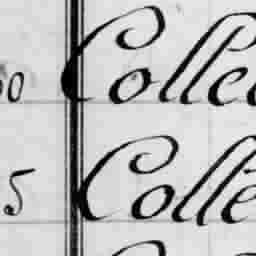 50 Collec
5 Colle